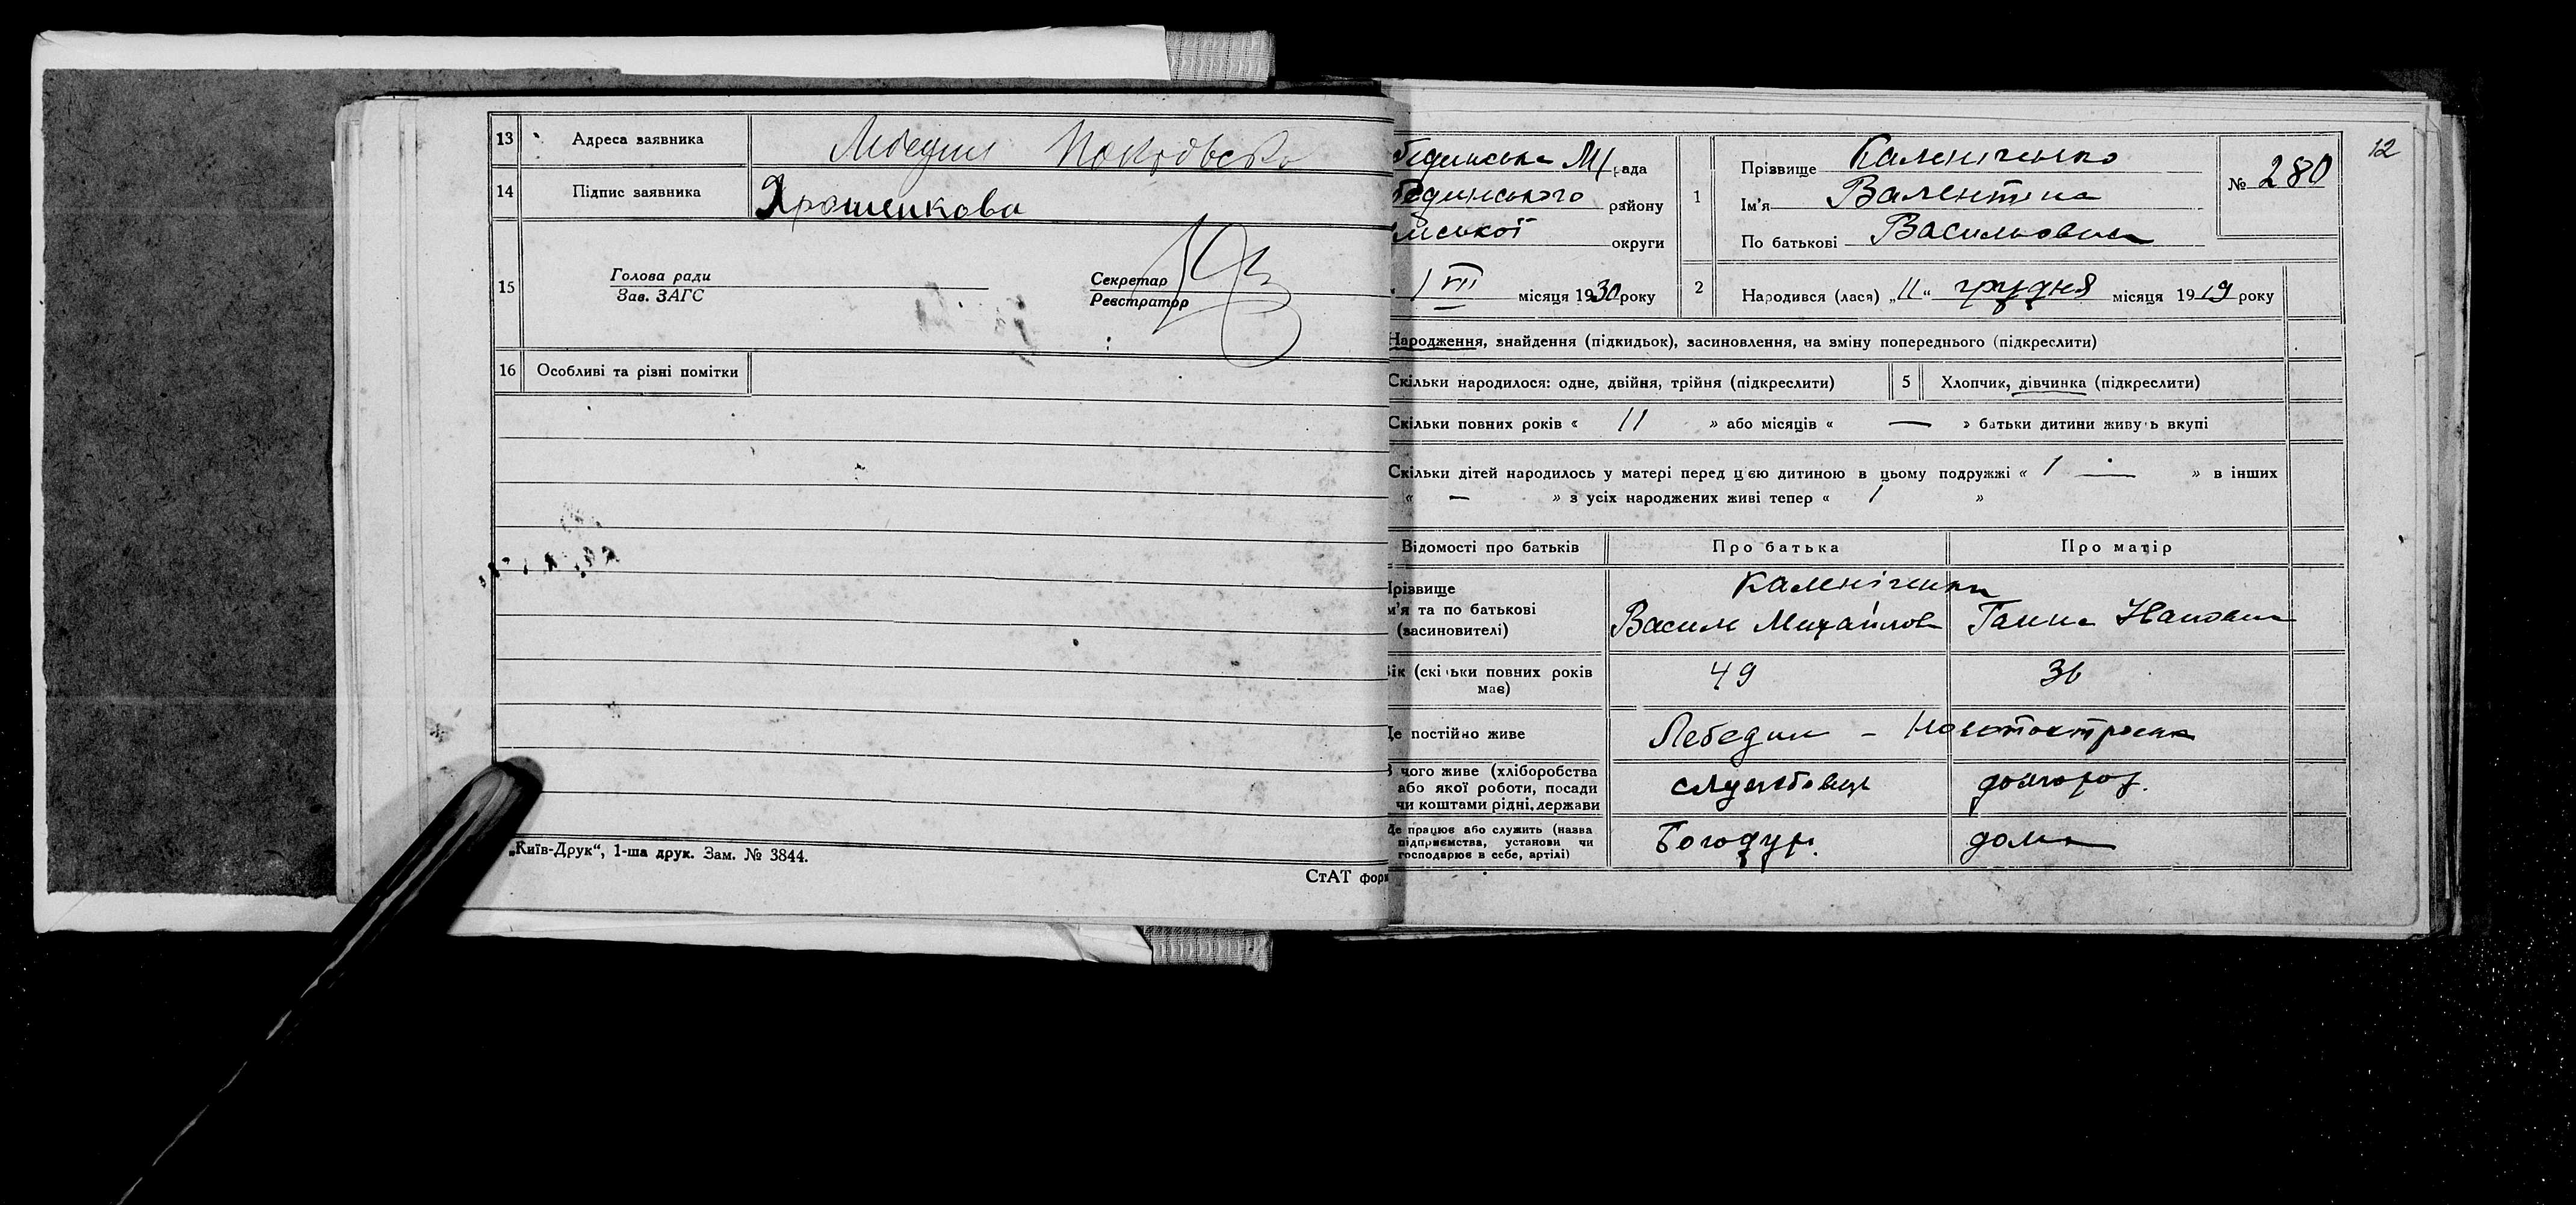 13 Адреса заявника Лебедин
14 Підпис заявника Ярошенкова
15 Голова ради
Зав. ЗАГС
Секретар
Реєстратор
16 Особливі та різні помітки
„Київ-Друк“, 1-ша друк. Зам. № 3844.
СтАТ фор
12
бединська М/рада
бединського району
мської округи
1 VII місяця 1930 року
1 Прізвище Каленіченко
Ім'я Валентина
По батькові Васильовна
№ 280
2 Народився (лася) „11“ грудня місяця 1919 року
Народження, знайдення (підкидьок), засиновлення, на зміну попереднього (підкреслити)
Скільки народилося: одне, двійня, трійня (підкреслити) 5 Хлопчик, дівчинка (підкреслити)
Скільки повних років « 11 » або місяців « — » батьки дитини живуть вкупі
Скільки дітей народилось у матері перед цією дитиною в цьому подружжі « 1 — » в інших
« — » з усіх народжених живі тепер « 1 »
Відомості про батьків Про батька Про матір
Прізвище
м'я та по батькові
(засиновителі)
Каленіченки
Василь Михайлов Ганна
Вік (скільки повних років
має)
49 36
Де постійно живе Лебедин –
З чого живе (хліборобства
або якої роботи, посади
чи коштами рідні, держави
службовець домогос.
Де працює або служить (назва
підприємства, установи чи
господарює в себе, артілі)
Богодух. дома